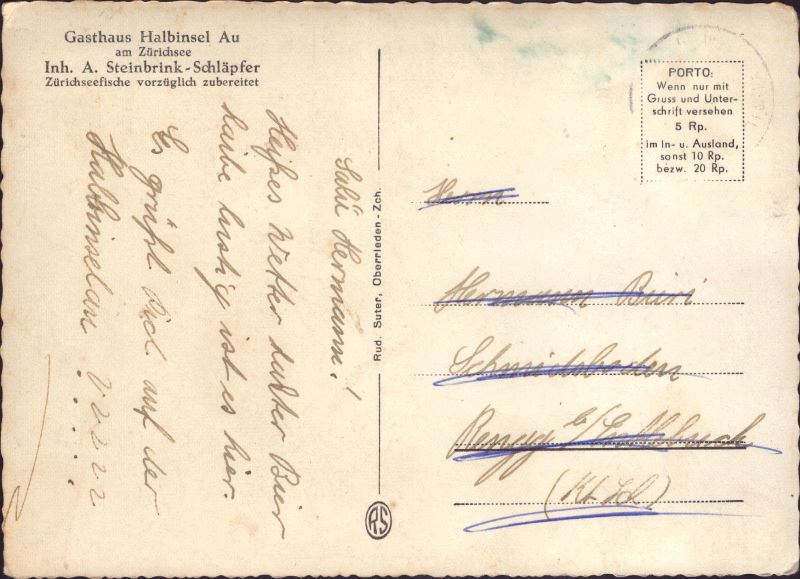 Gasthaus Halbinsel Au
am Zürichsee
Inh. A. Steinbrink-Schläpfer
Zürichseefische vorzüglich zubereitet
Salü Hermann!
Heißes Wetter kühles Bier
haibe lustig ist es hier.
Es grüßt Dich auf der
Halbinselau
Rud. Suter, Oberrieden-Zch.
RS
PORTO:
Wenn nur mit
Gruss und Unter-
schrift versehen
5 Rp.
im In- u. Ausland,
sonst 10 Rp.
bezw. 20 Rp.
Herrn
Hermann Büri
Schmidsboden
b/Entlebuch